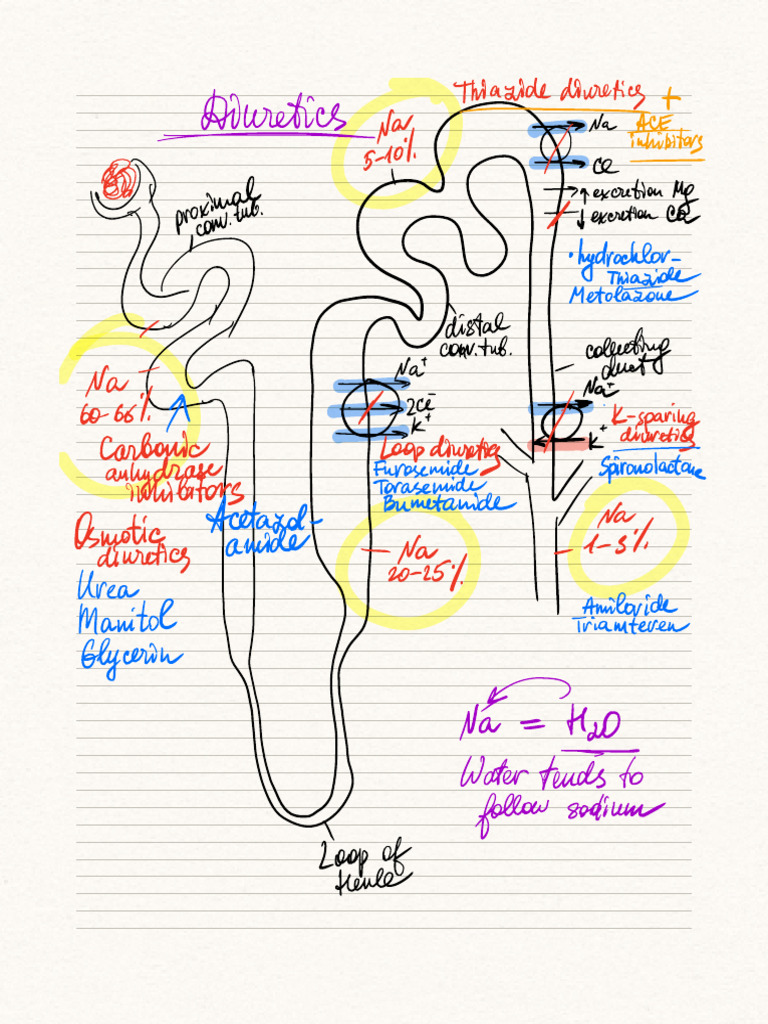 Diuretics
Na
5-10%
Thiazide diuretics +
ACE
inhibitors
Na
Cl
↑ excretion Mg
↓ excretion Ca
• hydrochlor-
Thiazide
Metolazone
proximal
conv. tub.
distal
conv. tub.
collecting
duct
Na
60-66%
Carbonic
anhydrase
inhibitors
Acetazol-
amide
Osmotic
diuretics
Urea
Manitol
Glycerin
Na+
2Cl-
K+
Loop diuretics
Furosemide
Torasemide
Bumetamide
Na
20-25%
Na+
K+
K-sparing
diuretics
Spironolactone
Na
1-5%
Amiloride
Triamteren
Na = H2O
Water tends to
follow sodium
Loop of
Henle